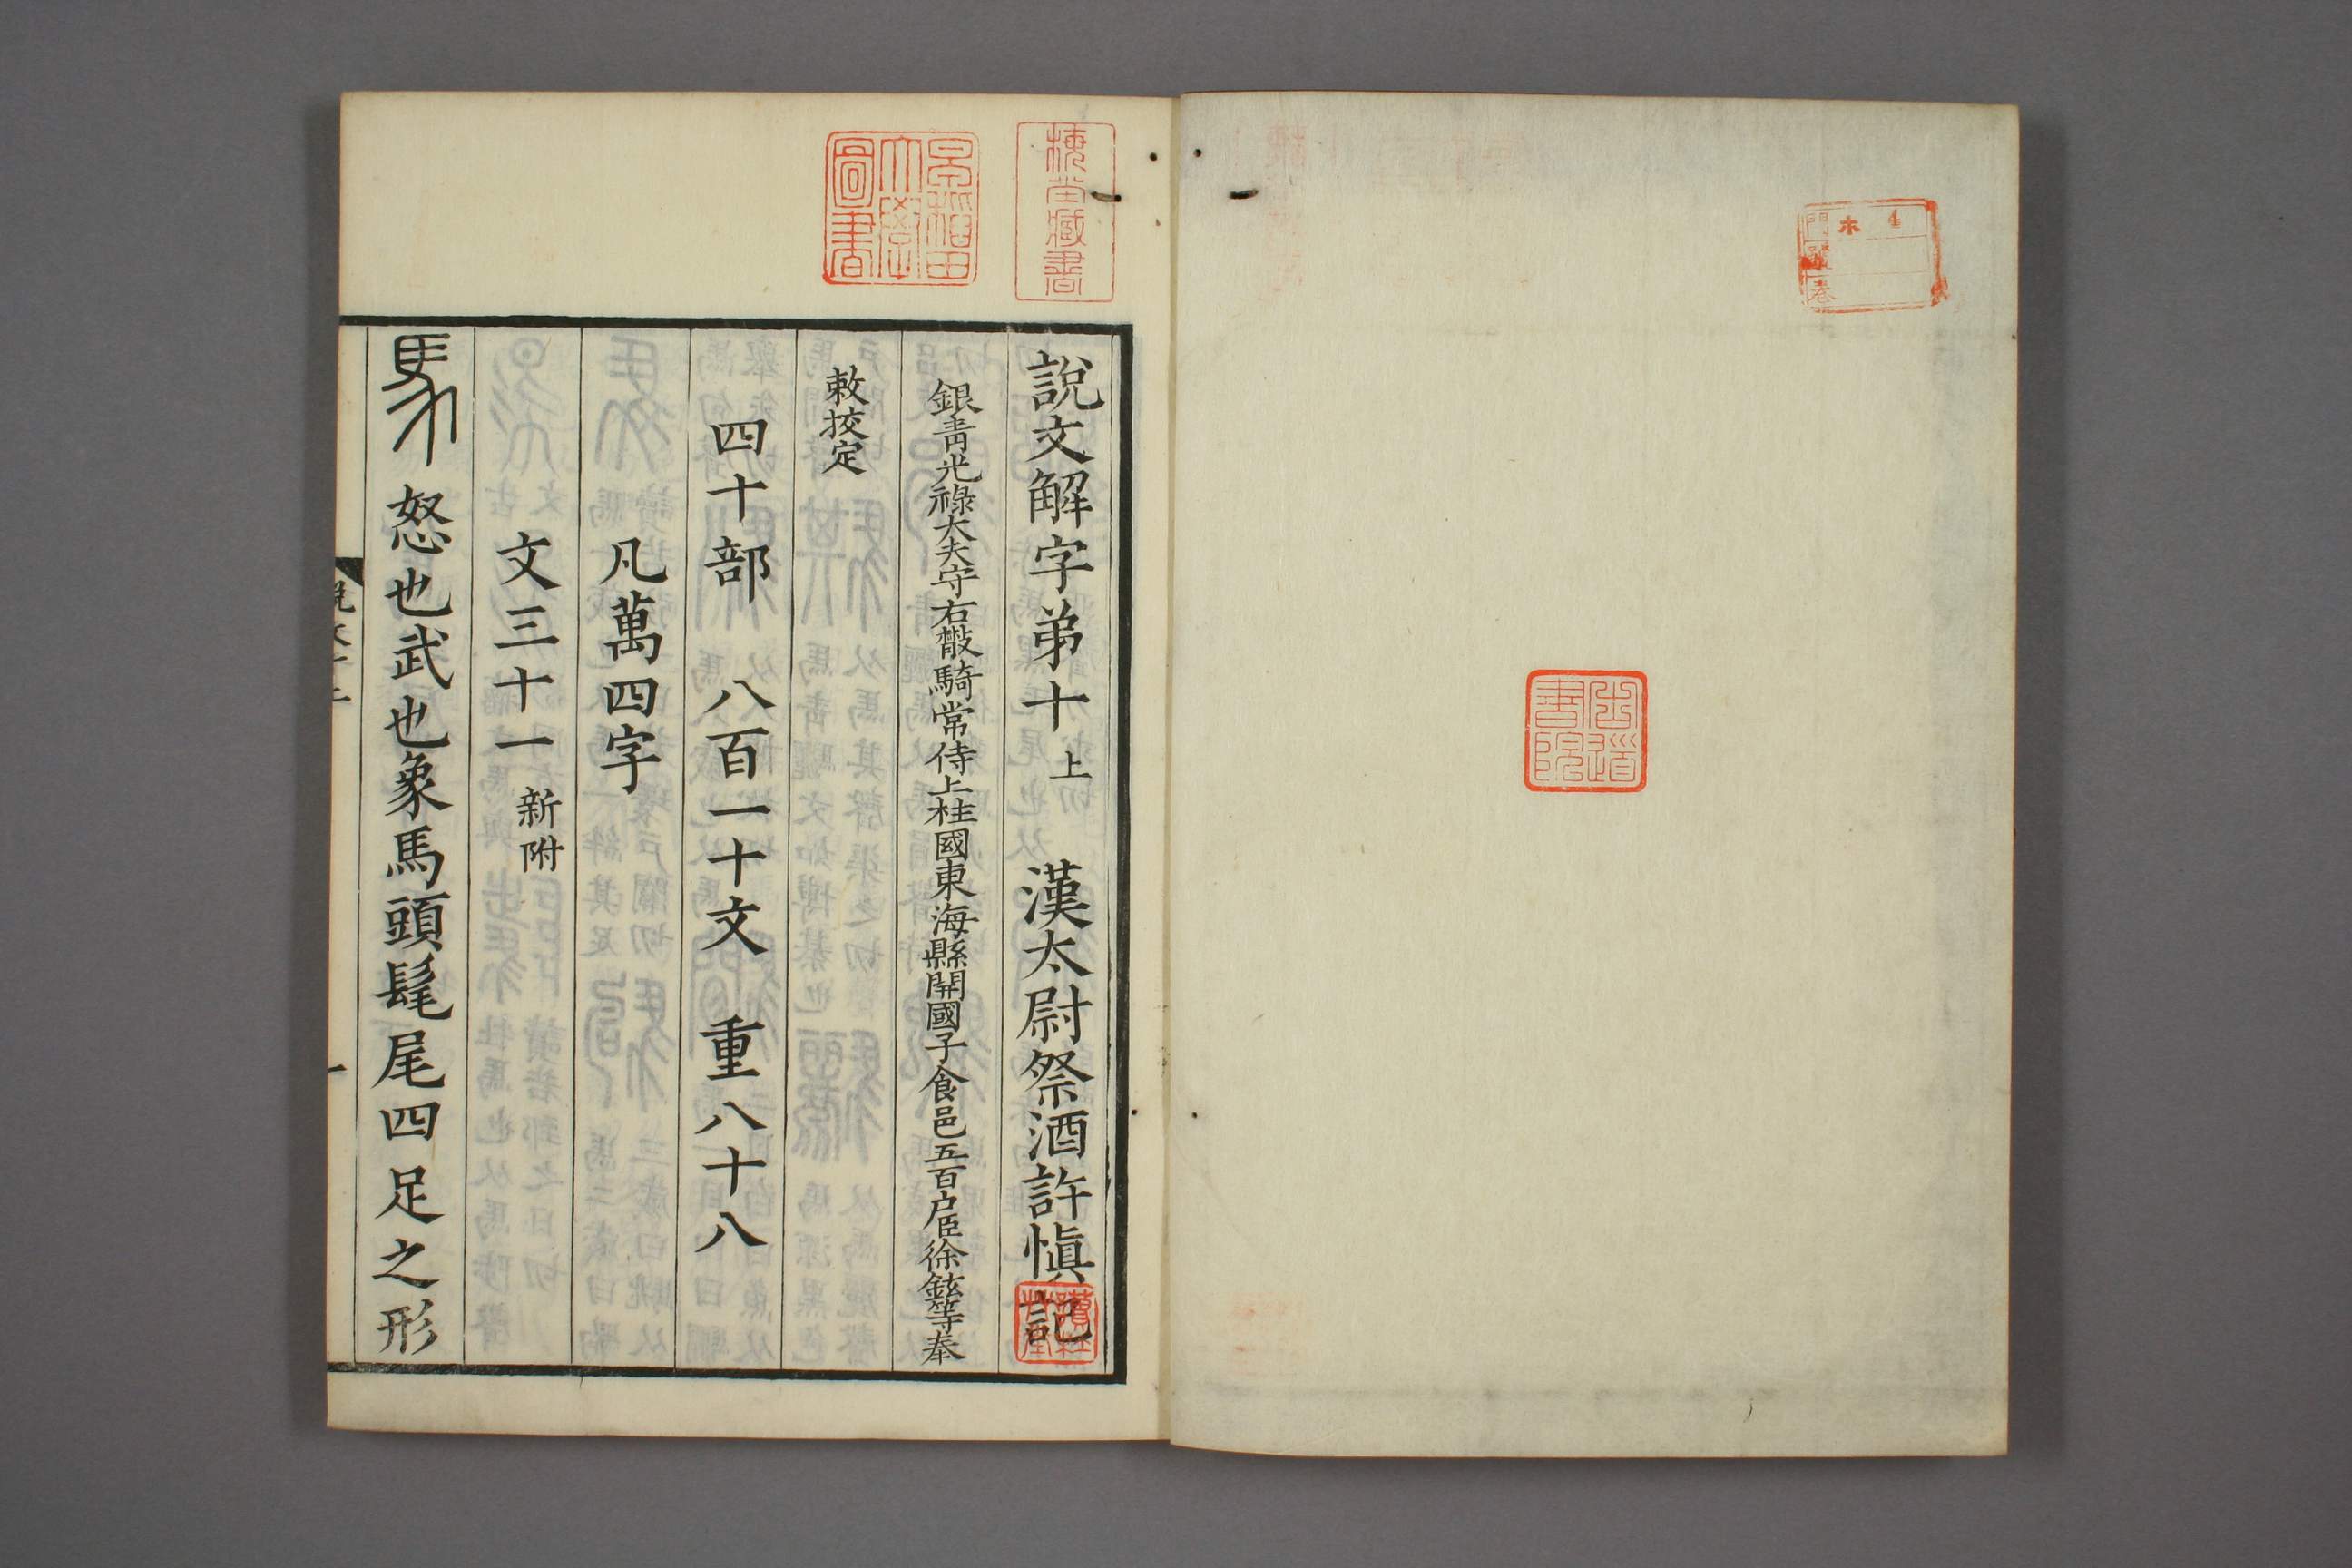 門 ホ 4
號
卷
梅堂藏書
早稲田
大學
圖書
說文解字弟十上 漢太尉祭酒許慎記
銀青光祿大夫守右散騎常侍上柱國東海縣開國子食邑五百户臣徐鉉等奉
敕挍定
四十部 八百一十文 重八十八
凡萬四字
文三十一新附
馬 怒也武也象馬頭髦尾四足之形
說文十上
一